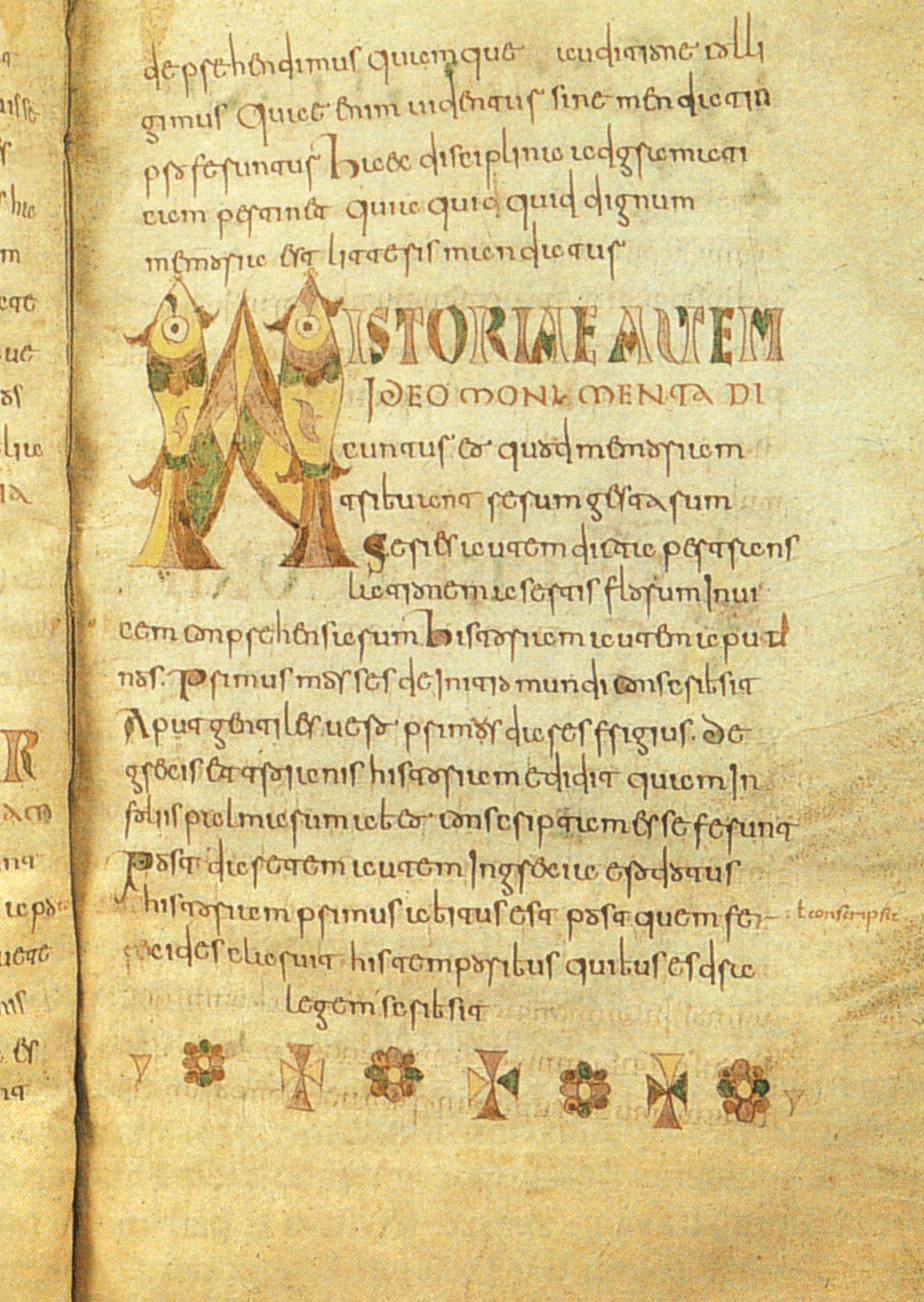 deprehendimus quamque auditione colli
gimus Quae enim uidentur sine mendacio
proferuntur Haec disciplina adgramati
cam pertinet quia quid quid dignum
memoria est litteris mandatur
HISTORIAE AUTEM
IDEO MONUMENTA DI
cuntur eo quod memoriam
tribuant rerum gestarum
Series autem dicta pertrans
lationem asertis florum Inui
cem conprehensarum historiam autem aput
nos. Primus moyses deInitio mundi conscribsit
Aput gentiles uero primos dares frigius. de
grecis et troianis historiam edidit quam In
foliis palmarum ab eo conscribtam esse ferunt
Post daretem autem Ingrecia erodotus
historiam primus abitus est post quem fe
recides claruit his temporibus quibus esdra
legem scribsit